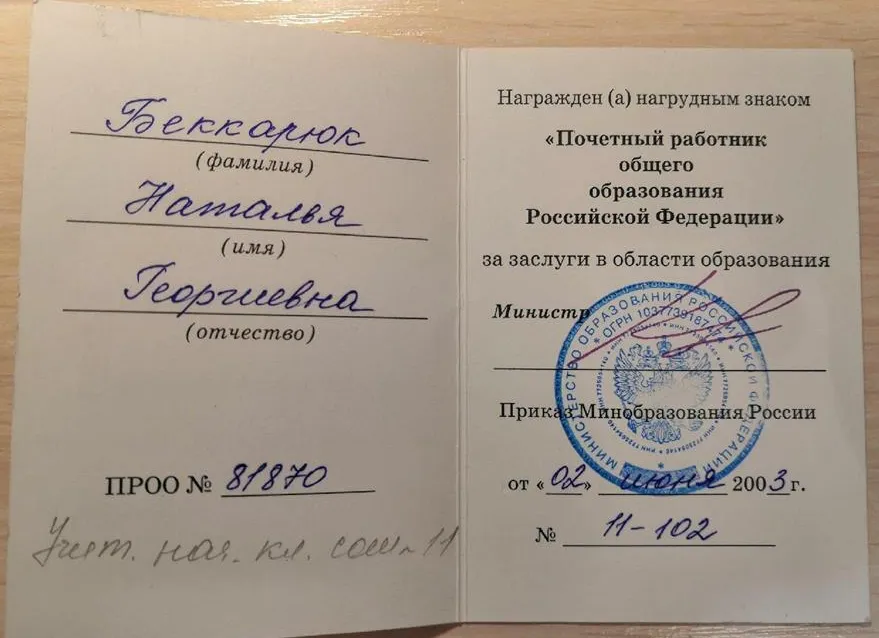 Беккарюк
(фамилия)
Наталья
(имя)
Георгиевна
(отчество)
ПРОО № 81870
Учит. нач. кл. сош-11
Награжден (а) нагрудным знаком
«Почетный работник
общего
образования
Российской Федерации»
за заслуги в области образования
Министр
МИНИСТЕРСТВО ОБРАЗОВАНИЯ РОССИЙСКОЙ ФЕДЕРАЦИИ
* ОГРН 1037739187474 *
Приказ Минобразования России
от «02» июня 2003 г.
№ 11-102